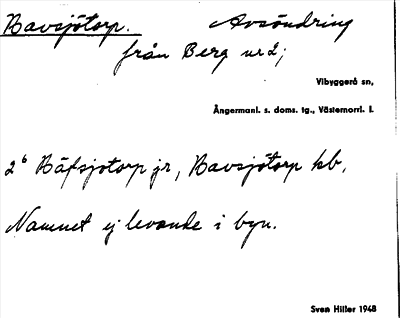 Bavsjötorp. Avsöndring
från Berg nr 2;
Vibyggerå sn,
Ångermanl. s. doms. tg., Västernorrl. l.
2⁶ Bäfsjotorp jr, Bavsjötorp kb.
Namnet ej levande i byn.
Sven Hiller 1948